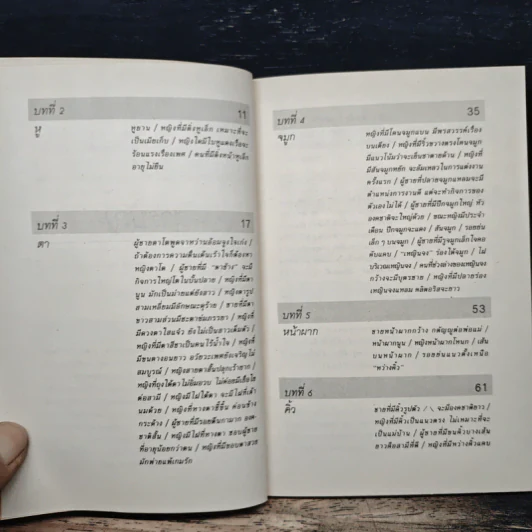 บทที่ 2 11
หู
หูยาน / หญิงที่มีติ่งหูเล็ก เหมาะที่จะ
เป็นเมียเก็บ / หญิงใดมีใบหูแดงเรื่อจะ
ร้อนแรงเรื่องเพศ / คนที่มีติ่งหน้าหูเล็ก
อายุไม่ยืน
บทที่ 3 17
ตา
ผู้ชายตาโตพูดจาหว่านล้อมจูงใจเก่ง /
ถ้าต้องการความตื่นเต้นเร้าใจก็ต้องหา
หญิงตาโต / ผู้ชายที่มี "ตาช้าง" จะมี
กิจการใหญ่โตในบั้นปลาย / หญิงที่มีตา
นูน มักเป็นม่ายแต่ยังสาว / หญิงตารูป
สามเหลี่ยมมีลักษณะดุร้าย / ชายที่มีตา
ขาวสามส่วนมีชะตาข่มภรรยา / หญิงที่
มีดวงตาใสแจ๋ว ยังไม่เป็นสาวเต็มตัว /
หญิงที่มีตาสีชาเป็นคนไร้น้ำใจ / หญิงที่
มีขนตางอนยาว อวัยวะเพศยังเจริญไม่
สมบูรณ์ / หญิงสายตาสั้นปลุกเร้ายาก /
หญิงที่ถุงใต้ตาไม่อิ่มอวบ ไม่ค่อยมีเยื่อใย
ต่อสามี / หญิงไม่มีใต้ตา จะมีไฝที่เต้า
นมด้วย / หญิงที่หางตาชี้ขึ้น ค่อนข้าง
กระด้าง / ผู้ชายที่มีรอยตีนกามาก
ชาติสั้น / หญิงมีไฝที่หางตา ชอบผู้ชาย
ที่อายุน้อยกว่าตน / หญิงที่มีขอบตาสวย
มักพ่ายแพ้เกมรัก
บทที่ 4 35
จมูก
หญิงที่มีโหนจมูกแบน มีพรสวรรค์เรื่อง
บนเตียง / หญิงที่มีริ้วขวางตรงโคนจมูก
มีแนวโน้มว่าจะเย็นชาตายด้าน / หญิงที่
มีสันจมูกหยัก จะล้มเหลวในการแต่งงาน
ครั้งแรก / ผู้ชายที่ปลายจมูกแหลมจะมี
ตำแหน่งการงานดี แต่จะทำกิจการของ
ตัวเองไม่ได้ / ผู้ชายที่มีปีกจมูกใหญ่ หัว
องคชาติจะใหญ่ด้วย / ขณะหญิงมีประจำ
เดือน ปีกจมูกจะแดง / สันจมูก / รอยย่น
เล็ก ๆ บนจมูก / ผู้ชายที่มีรูจมูกเล็กใจคอ
คับแคบ / "เหยินจง" ร่องใต้จมูก / ไฝ
บริเวณเหยินจง / คนที่ช่วงล่างของเหยินจง
กว้างจะมีบุตรชาย / หญิงที่มีปลายร่อง
เหยินจงแหลม คลิตอริสจะยาว
บทที่ 5 53
หน้าผาก
ชายหน้าผากกว้าง กตัญญูต่อพ่อแม่ /
หน้าผากนูน / หญิงหน้าผากโหนก / เส้น
บนหน้าผาก / รอยย่นแนวตั้งเหนือ
"หว่างคิ้ว"
บทที่ 6 61
คิ้ว
ชายที่มีคิ้วรูปตัว /\ จะมีองคชาติยาว /
หญิงที่มีคิ้วเป็นแนวตรง ไม่เหมาะที่จะ
เป็นแม่บ้าน / ผู้ชายที่มีขนคิ้วบางเส้น
ยาวคือสามีที่ดี / หญิงที่มีหว่างคิ้วแคบ